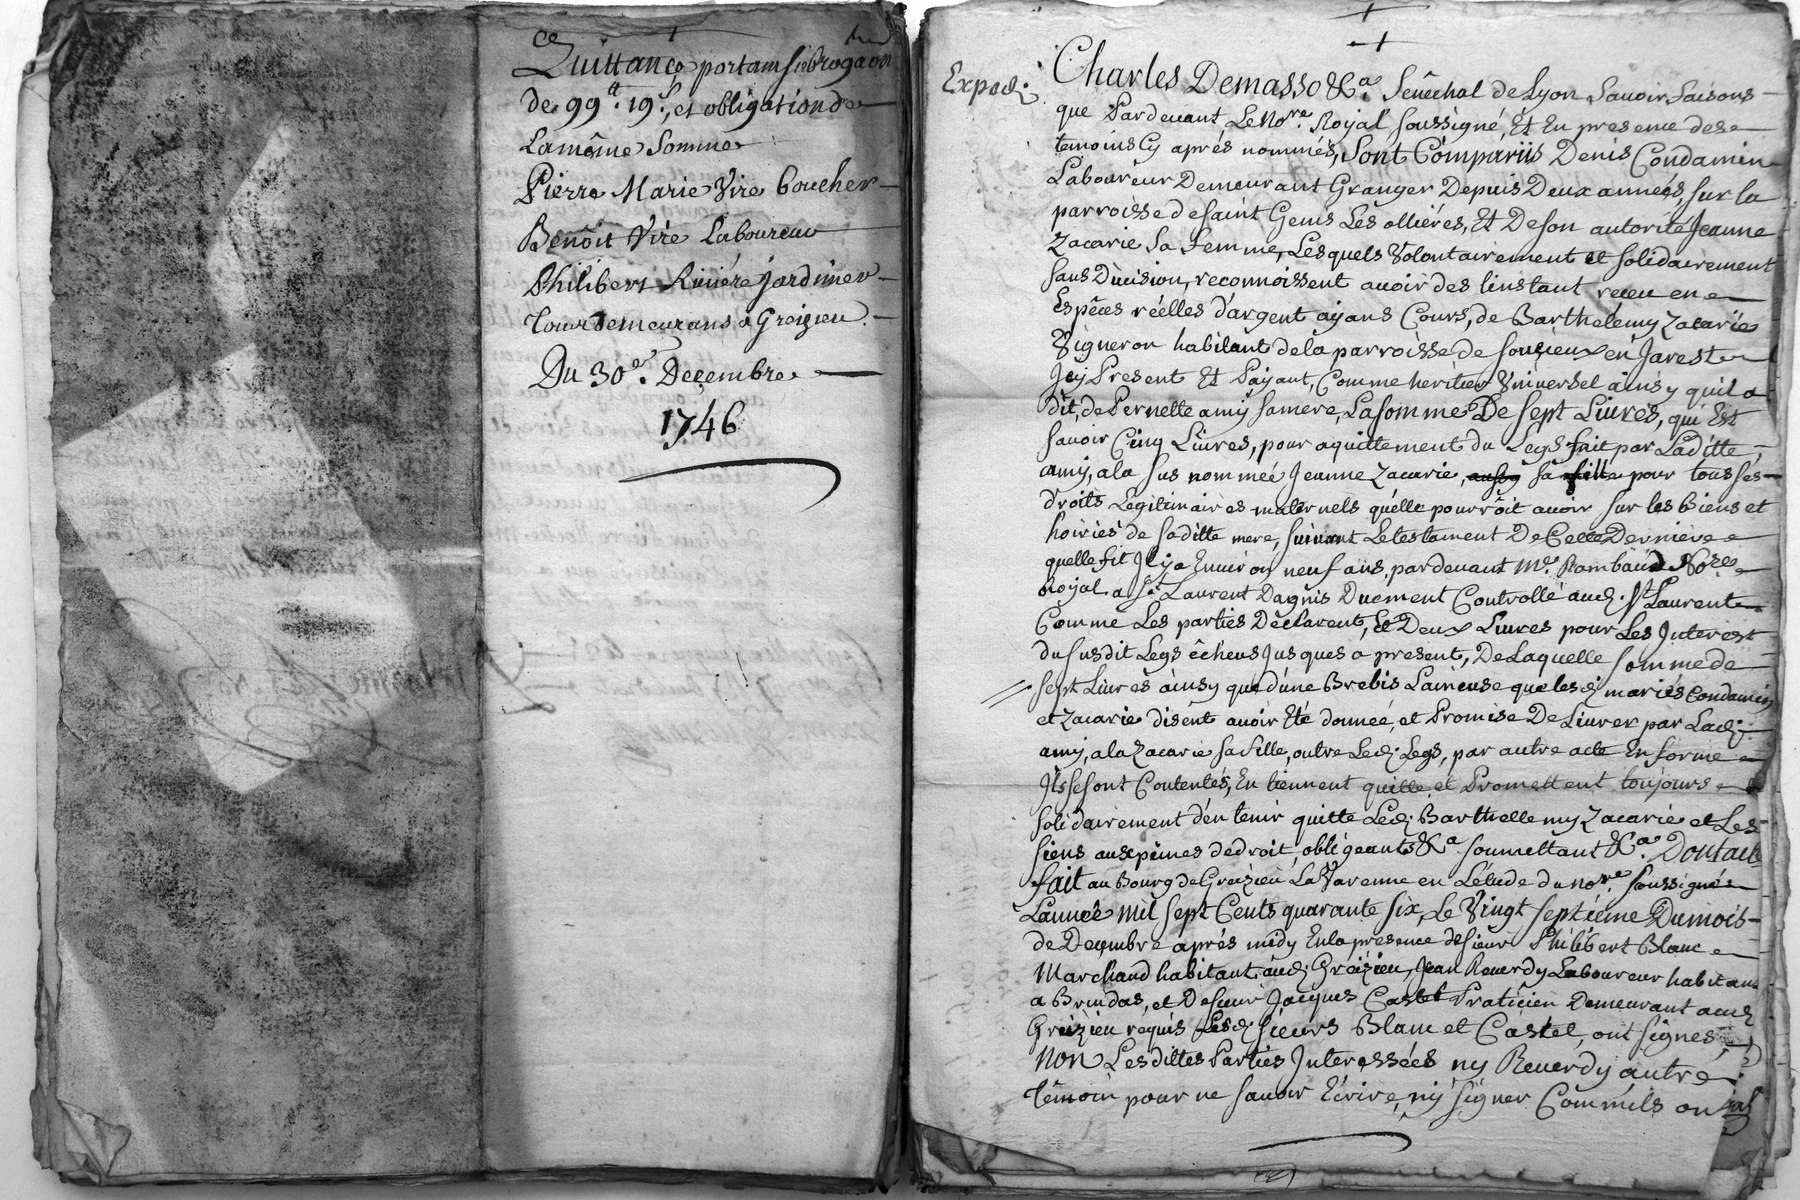 Quittance portant subrogaon
de 99lt. 19s, et obligation de
La même Somme
Pierre Marie Vire boucher
Benôit Vire Laboureur
Philibert Riviére jardinier
Tous demeurans a Greizieu.
Du 30e. Decembre
1746
Exped.
Charles Demasso &Ca. Sénéchal de Lyon Savoir faisons
que Pardevant Le Nore. Royal soussigné, Et En presence des
temoins Cy aprés nommés, Sont Compariis Denis Condamin
Laboureur Demeurant Granger Depuis Deux années, sur la
parroisse de saint Genis Les ollières, Et De son autorité Jeanne
Zacarie Sa femme, Lesquels Volontairement et solidairement
sans Division, reconnoissent avoir des linstant receu en
Espêces réelles d'argent ayans Cours, de Barthelemy Zacarie
Vigneron habitant de la parroisse de Soucieux en Jarest
Icy Present Et Payant, Comme heritier Vniversel ainsy quil a
dit, de Pernette amy sa mere, La somme De Sept Livres, qui Est
savoir Cinq Livres, pour aquittement du Legs fait par Laditte
amy, a la sus nommeé Jeanne Zacarie, sa fille pour tous ses
droits Legitimaires maternels qu'elle pourrôit avoir sur les Biens et
hoiriés de saditte mere, suivant Le testament De Cette Derniere
quelle fit Il y a Environ neuf ans, pardevant Me. Rambaud Nore
Royal a St. Laurent Dagnis Duement Controllé aud. St Laurent
Comme Les parties Déclarent, Et Deux Livres pour Les Interest
du susdit Legs êcheus Jusques a present, De Laquelle somme de
sept Livres ainsy que d'une Brebis Laineuse que lesd. mariés Condamin
et Zacarie disent avoir Eté donneé, et Promise De Livrer par Lad.
amy, a la Zacarie sa fille, outre Led. Legs, par autre acte En forme
Ils se sont Contentés, En tiennent quitte, et Promettent toujours
solidairement d'en tenir quitte Led. Barthellemy Zacarie et Les
siens aux peines de droit, obligeants &Ca soumettant &Ca. Dont acte
fait au Bourg de Greizieu La Varenne en L'étude du nore. soussigné
L'année mil sept Cents quarante six, Le Vingt septiéme Du mois
de Decembre aprés midy En la presence de sieur Philibert Blanc
Marchand habitant aud. Greizieu, Jean Reverdy Laboureur habitant
a Brindas, et De sieur Jacques Castet Praticien Demeurant aud.
Greizieu requis Lesd. sieurs Blanc et Castet, ont signés,
Non Lesdittes Parties Interessées ny Reverdy autre
Témoin pour ne savoir Ecrire, ny signer Comm'ils ont